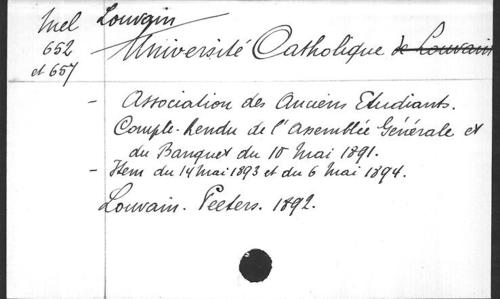 Mel Louvain
652 Université Catholique de Louvain
et 657
- Association des Anciens Etudiants.
Compte-Rendu de l'Assemblée Générale et
du Banquet du 10 Mai 1891.
- Item du 14 Mai 1893 et du 6 Mai 1894.
Louvain. Peeters. 1892.